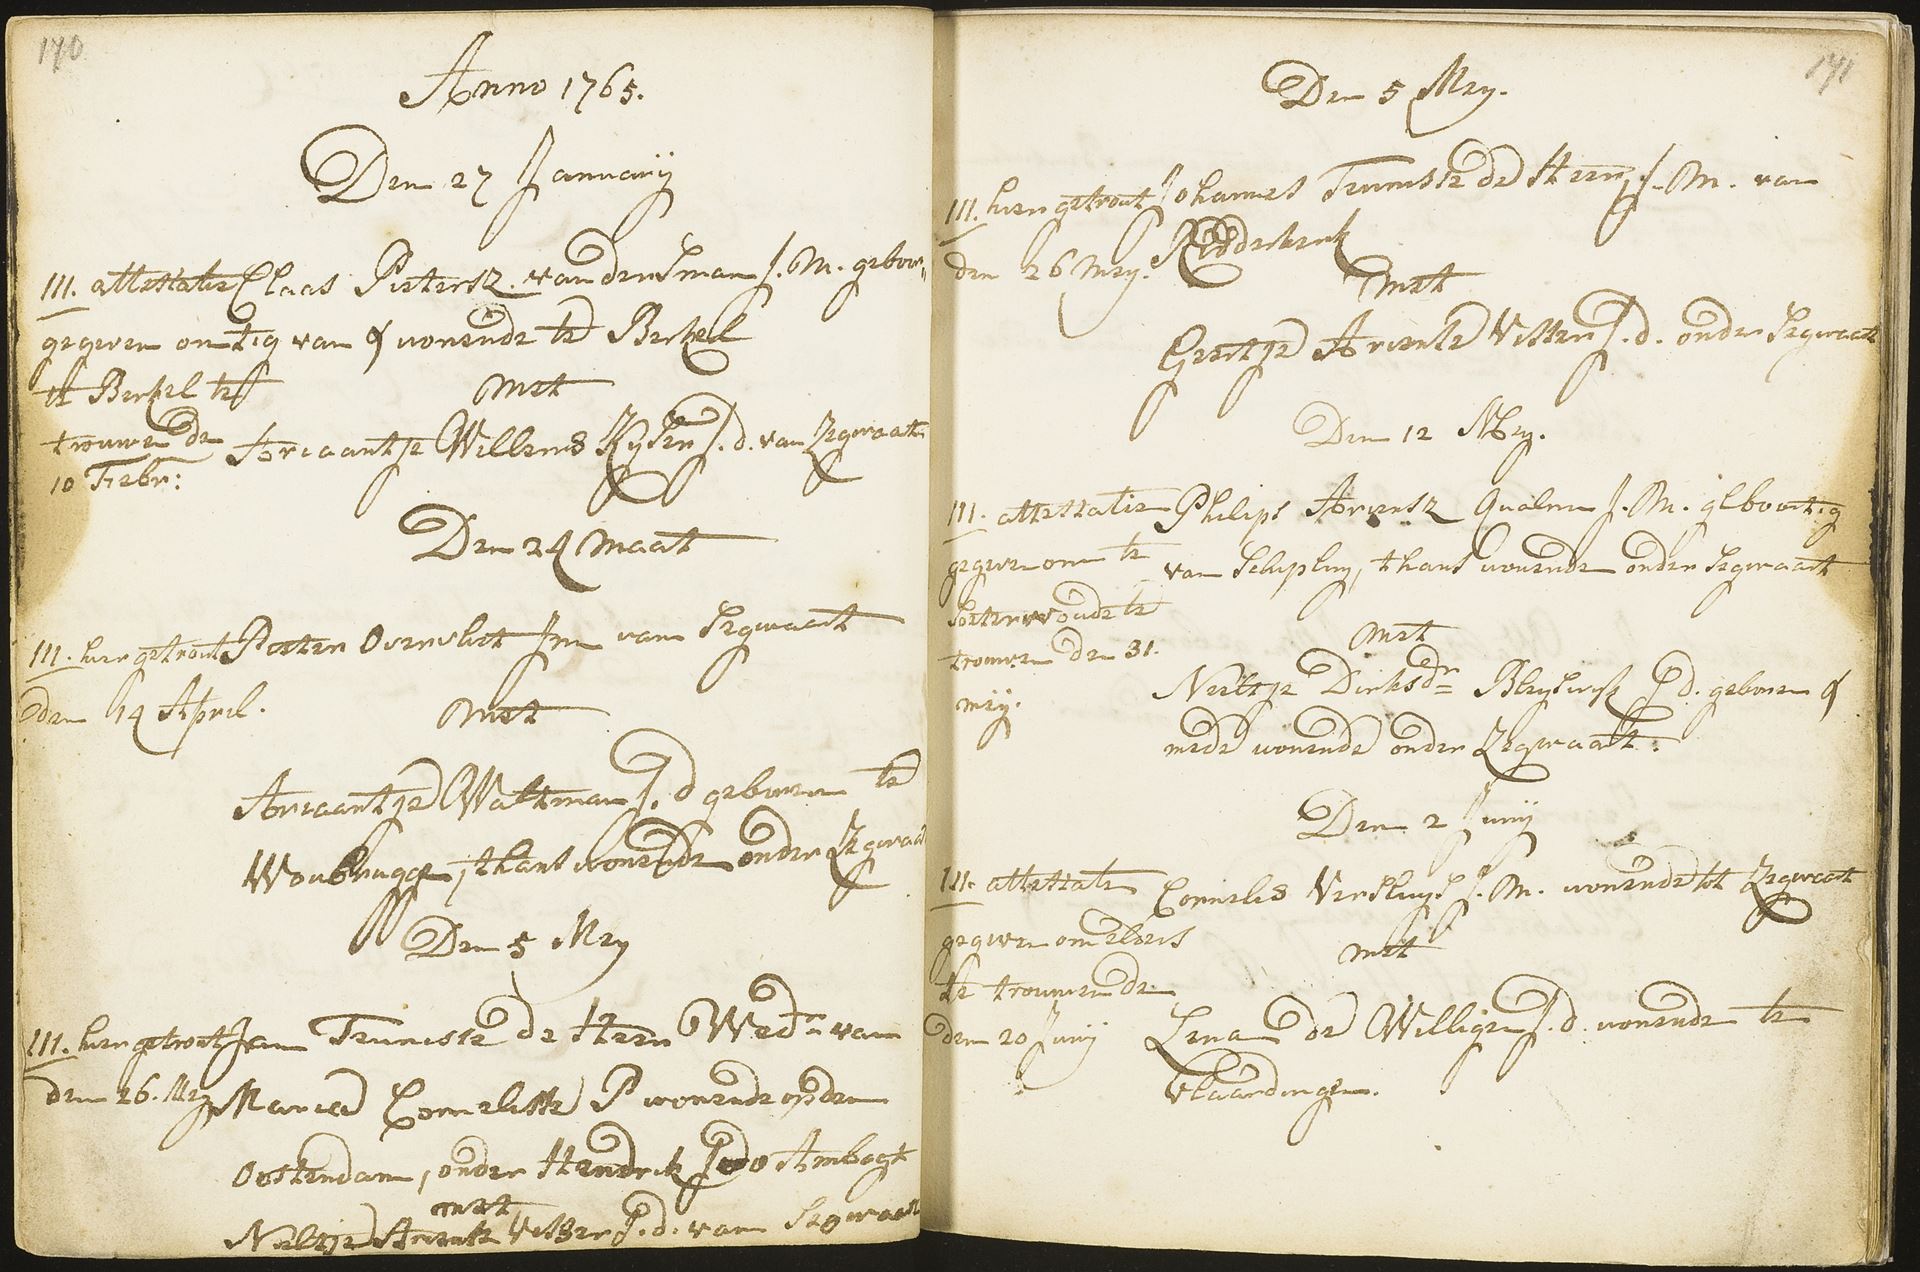 170
Anno 1765.
Den 27 Januarij
III. attestatie Claas Pietersz. van der Sman J. M. geboor„
gegeven om tig van & wonende te Berkel
te Berkel te
met
trouwen de Ariaantje Willems Kyser J. d. van Zegwaart
10 Febr:
Den 24 Maart
III. hier getrout Pieter Overvliet Jm van Segwaart
den 14 April.
met
Ariaantje Waltman J. d geboren te
Woubrugge, thans wonende onder Zegwaart
Den 5 Mey
III. hier getrout Jan Teunisse de Heer Wedr van
den 26. Mey Maria Cornelisse P wonende op den
Oostendam, onder Hendrik Ido Ambagt
met
Neeltje Arents Visser J. d. van Segwaart
171
Den 5 Mey.
III. hier getrout Johannes Teunisse de Heer, J. M. van
den 26 Mey. Ridderkerk
met
Geertje Arients Visser J. d. onder Segwaart
Den 12 Mey.
III. attestatie Philips Ariensz Qualm J. M. geboortig
gegeven om te van Schipluy, thans wonende onder Segwaart
Soeterwoude te
met
trouwen den 31.
Neeltje Dirksdr Bleyswyk J d. geboren &
mey.
mede wonende onder Zegwaart.
Den 2 Juny
III. attestatie Cornelis Versluys J. M. wonende tot Zegwaart
gegeven om elders
met
te trouwen de
den 20 Juny Lena de Willigen J. d. wonende te
Vlaardingen.